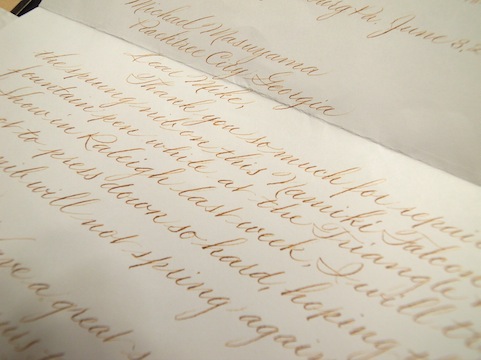 June 3, 2
Michael Masuyama
Peachtree City, Georgia
Dear Mike,
Thank you so much for repairi
the sprung nib on this Namiki Falcon
fountain pen while at the Triangle
Show in Raleigh last week. I will tr
ot to press down so hard, hoping
nib will not spring again
ve a great